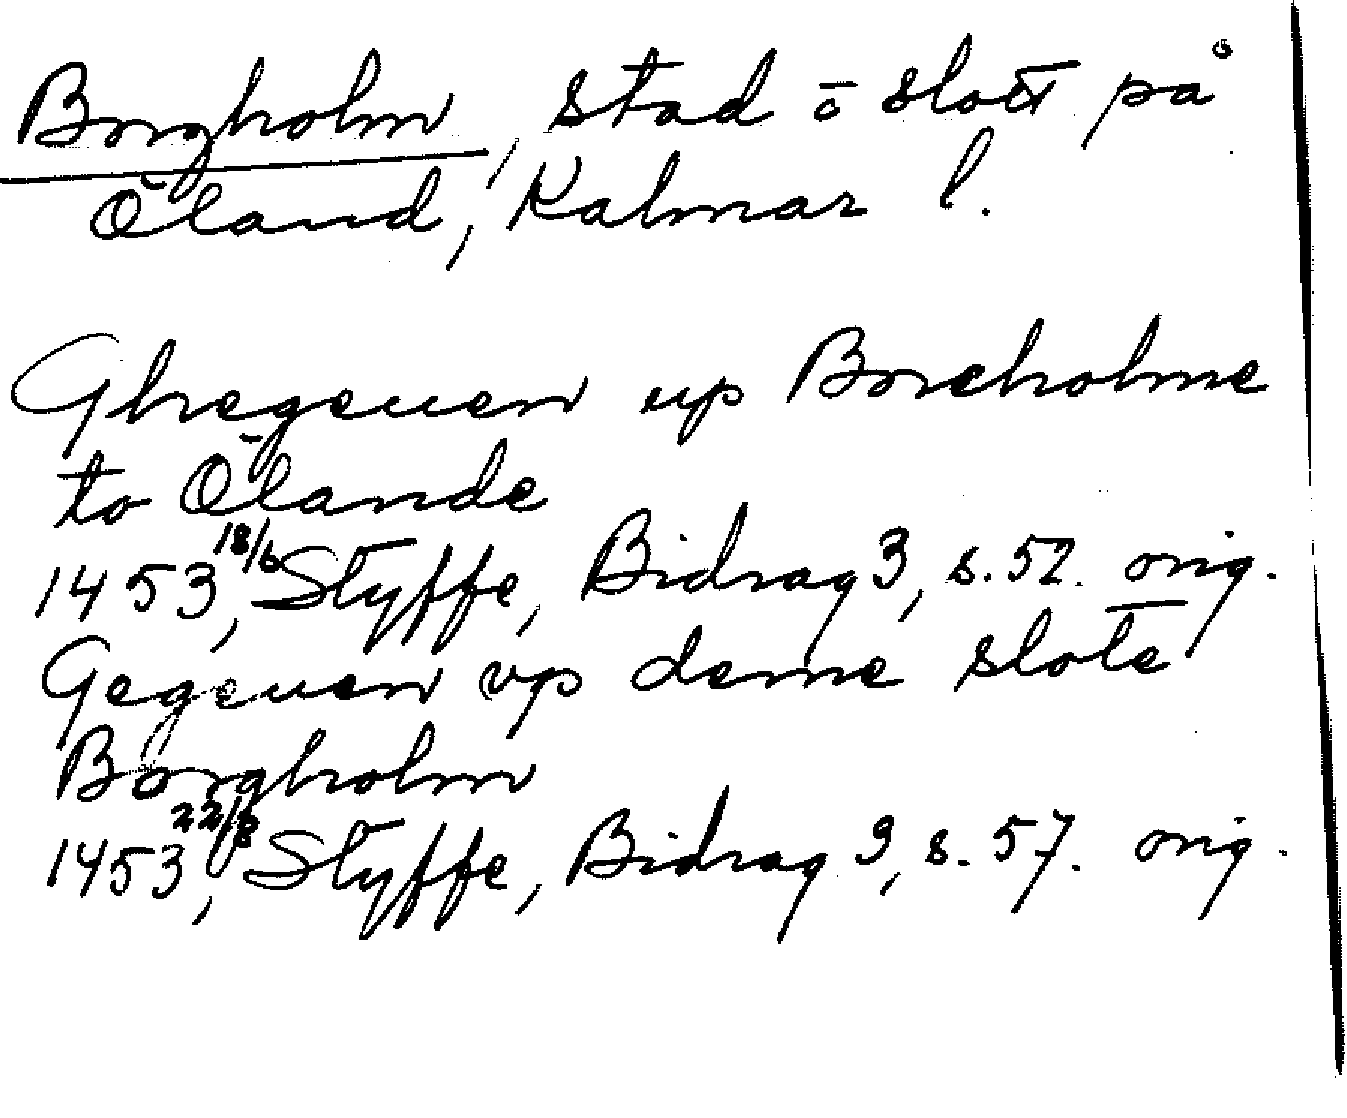 Borgholm, stad o slott på
Öland, Kalmar l.
Ghegeuen up Borcholme
to Olande
1453 18/6, Styffe, Bidrag 3, s. 52. orig.
Gegeuen vp deme slote
Borgholm
1453 22/8, Styffe, Bidrag 3, s. 57. orig.